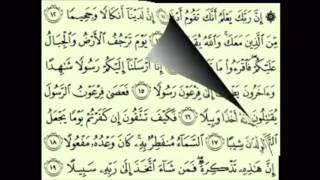 ۞ إِنَّ رَبَّكَ يَعْلَمُ أَنَّكَ تَقُومُ إِنَّ لَدَيْنَا أَنكَالًا وَجَحِيمًا ١٢
مِّنَ الَّذِينَ مَعَكَ وَاللَّهُ يَوْمَ تَرْجُفُ الْأَرْضُ وَالْجِبَالُ
عَلَيْكُمْ فَاقْرَءُوا مَا أَرْسَلْنَا إِلَيْكُمْ رَسُولًا شَٰهِدًا
وَءَاخَرُونَ إِلَىٰ فِرْعَوْنَ رَسُولًا ١٥ فَعَصَىٰ فِرْعَوْنُ الرَّسُولَ
يُقَٰتِلُونَ أَخْذًا وَبِيلًا ١٦ فَكَيْفَ تَتَّقُونَ إِن كَفَرْتُمْ يَوْمًا يَجْعَلُ
الْوِلْدَٰنَ شِيبًا ١٧ السَّمَاءُ مُنفَطِرٌ بِهِ كَانَ وَعْدُهُ مَفْعُولًا ١٨
إِنَّ هَٰذِهِ تَذْكِرَةٌ فَمَن شَاءَ اتَّخَذَ إِلَىٰ رَبِّهِ سَبِيلًا ١٩